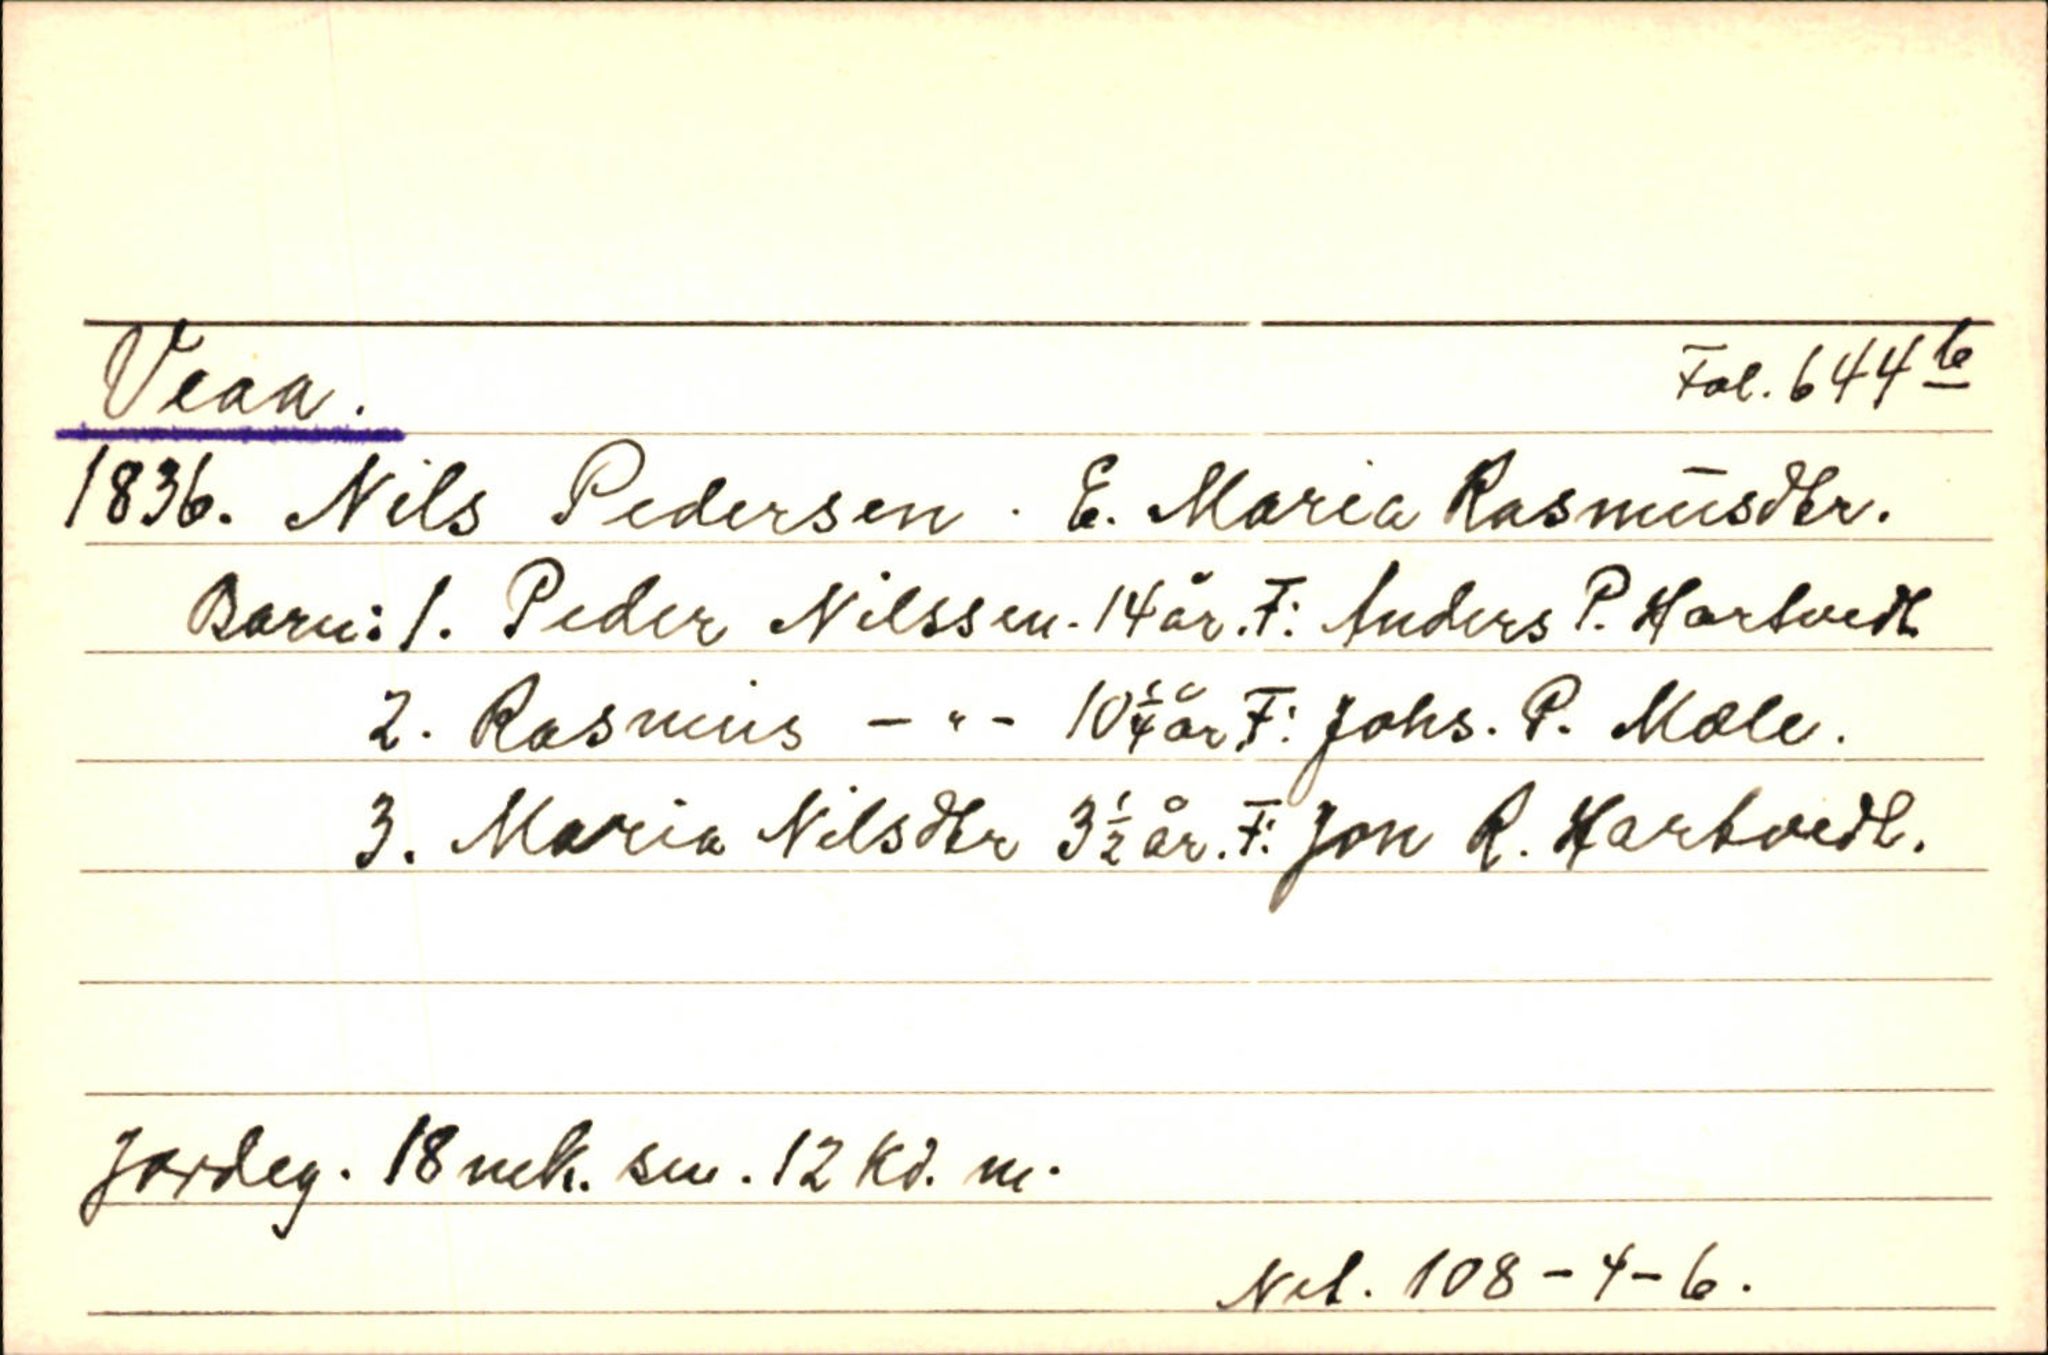 Veaa. Fol. 644 b
1836. Nils Pedersen. E. Maria Rasmusdtr.
Barn: 1. Peder Nilssen. 14 år. F: Anders P. Hartvedt
2. Rasmus - " - 10 1/4 år F: Johs. P. Mæle.
3. Maria Nilsdtr 3 1/2 år. F: Jon R. Hartvedt.
Jordeg. 18 mk. sm. 12 kd. m.
Net. 108-4-6.